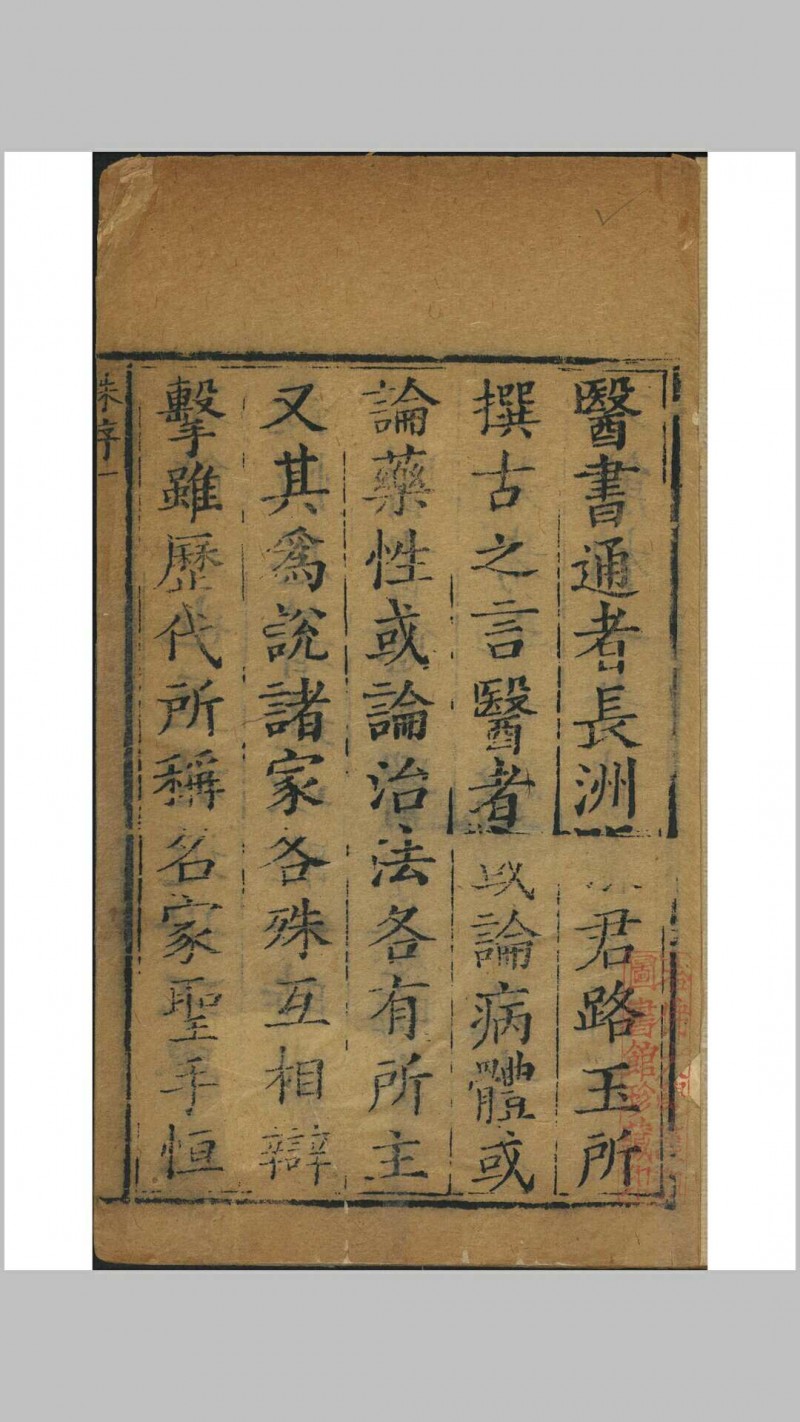 醫書通者長洲君路玉所
撰古之言醫者或論病體或
論藥性或論治法各有所主
又其爲說諸家各殊互相辯
擊雖歷代所稱名家聖手恒
朱序一
圖書館珍藏印